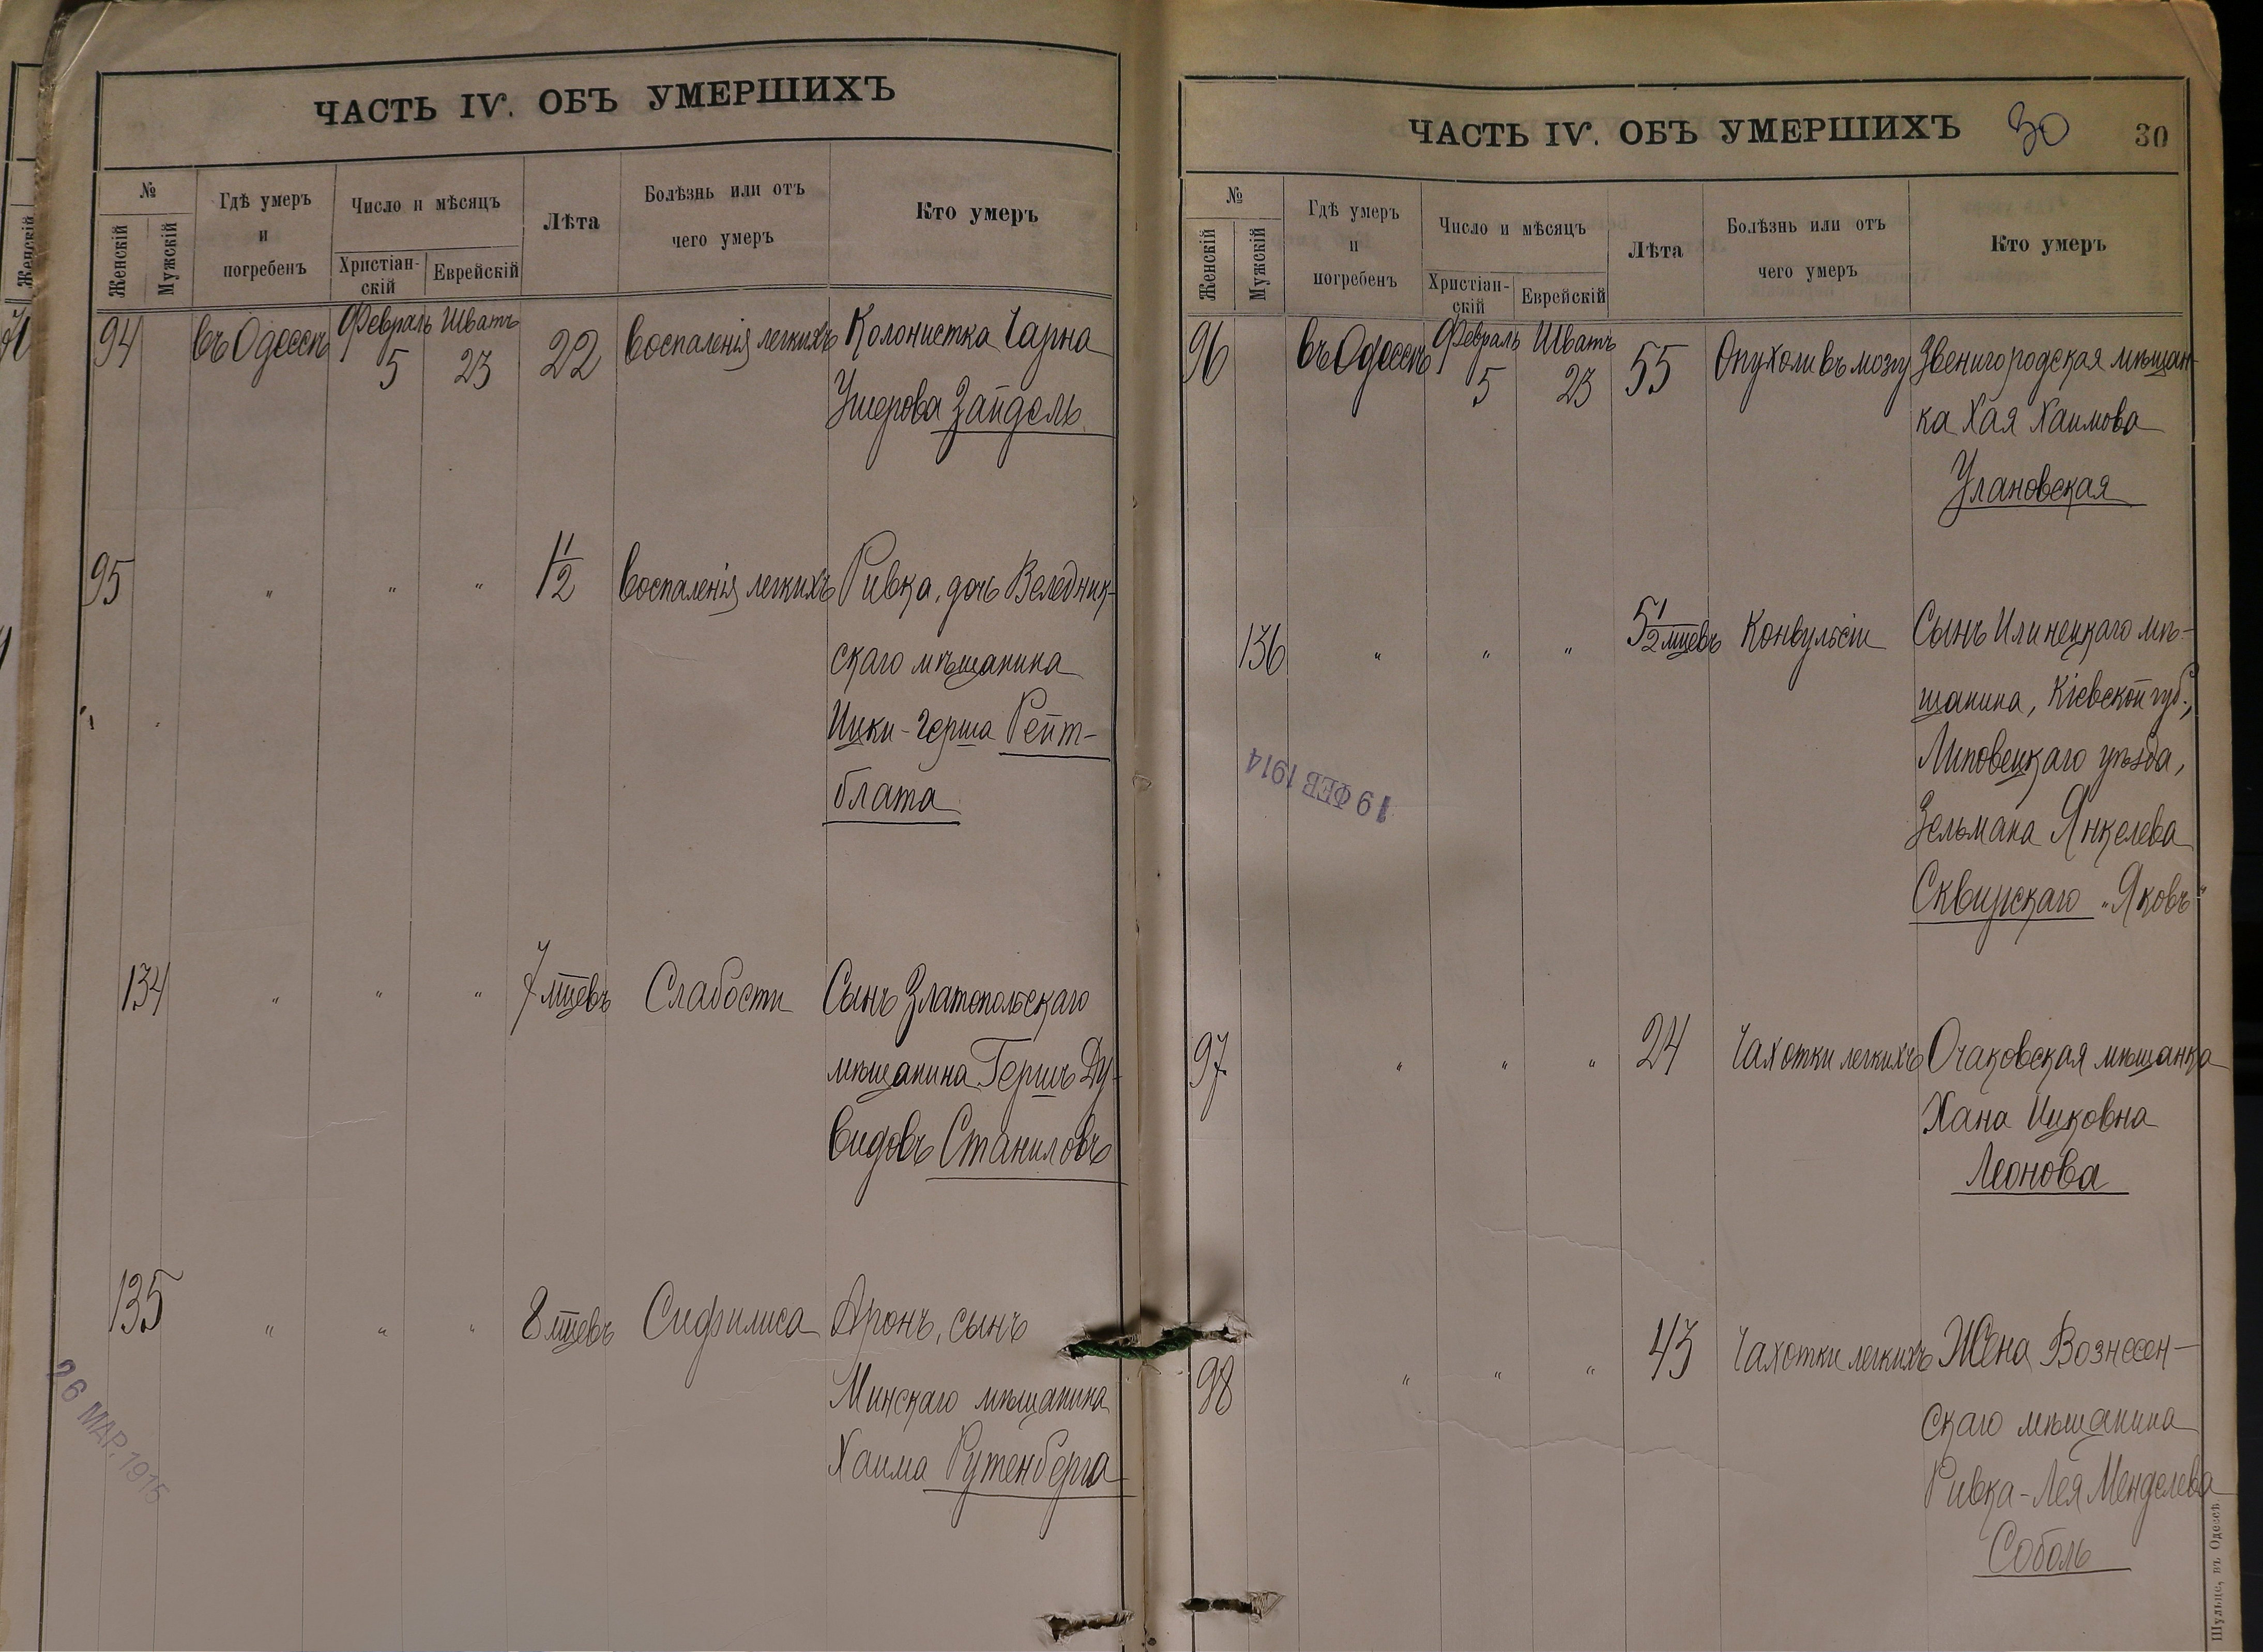 ЧАСТЬ IV. ОБЪ УМЕРШИХЪ
№
Женскій
Мужскій
Гдѣ умеръ
и
погребенъ
Число и мѣсяцъ
Христіан-
скій
Еврейскій
Лѣта
Болѣзнь или отъ
чего умеръ
Кто умеръ
94 въ Одессѣ Февраль 5 Шватъ 23 22 воспаленія легкихъ Колонистка Чарна
Ушерова Зайдель
95 " " " 1 1/2 воспаленія легкихъ Ривка, дочь Веледник-
скаго мѣщанина
Ицки-Герша Рейт-
блата
134 " " " 7 мцевъ Слабости Сынъ Златопольскаго
мѣщанина Гершъ Ду-
видовъ Станиловъ
135 " " " 8 мцевъ Сифилиса Аронъ, сынъ
Минскаго мѣщанина
Хаима Рутенберга
26 МАР. 1915
ЧАСТЬ IV. ОБЪ УМЕРШИХЪ 30 30
№
Женскій
Мужскій
Гдѣ умеръ
и
погребенъ
Число и мѣсяцъ
Христіан-
скій
Еврейскій
Лѣта
Болѣзнь или отъ
чего умеръ
Кто умеръ
96 въ Одессѣ Февраль 5 Шватъ 23 55 Опухоли въ мозгу Звенигородская мѣщан-
ка Хая Хаимова
Улановская
136 " " " 5 1/2 мцевъ Конвульсіи Сынъ Илинецкаго мѣ-
щанина, Кіевской губ.,
Липовецкаго уѣзда,
Зельмана Янкелева
Сквирскаго "Яковъ"
19 ФЕВ 1914
97 " " " 24 Чахотки легкихъ Очаковская мѣщанка
Хана Ицковна
Леонова
98 " " " 43 Чахотки легкихъ Жена Вознесен-
скаго мѣщанина
Ривка-Лея Менделева
Соболь
Шульце, въ Одессѣ